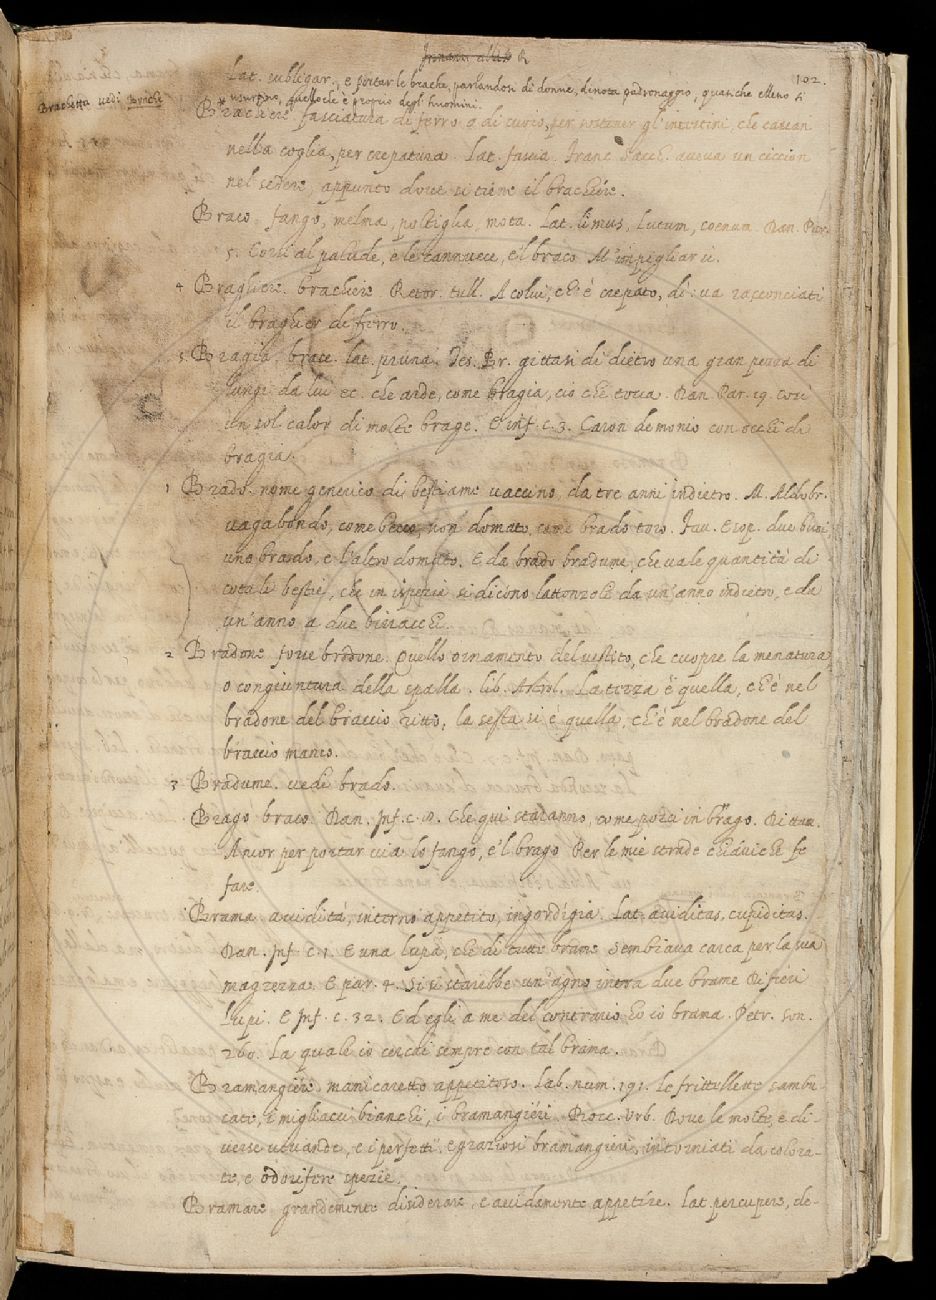 102.
Lat. subligar., e portar le brache, parlandosi di donne, dinota padronaggio, quasi che elleno si
Brachetta vedi Brache
usurpino, quello che è proprio degl'huomini.
Brachiere. fasciatura di ferro, o di cuoio, per sostener gl'intestini, che cascan
nella coglia, per crepatura. Lat. fascia. Franc. Sacch. aveva un ciccion
nel sedere, appunto dove si tiene il brachiere.
Braco. fango, melma, poltiglia, mota. Lat. limus, lutum, coenum. Dan. Pur.
5. Corsi al palude, e le cannucce, e'l braco M'impigliar sì.
4 Braghiere. brachiere. Retor. Tull. A colui, ch'è crepato, dì: va racconciati
il braghier di ferro.
5 Bragia. brace. lat. pruna. Tes. Br. gittasi di dietro una gran pezza di
lungi da lui ec. che arde, come bragia, ciò che tocca. Dan. Par. 19. Così
un sol calor di molte brage. E inf. c. 3. Caron demonio con occhi di
bragia.
1 Brado. nome generico di bestiame vaccino, da tre anni indietro. M. Aldobr.
vagabondo, come becco, non domato, come brado toro. Fav. Esop. due buoi,
uno brado, e l'altro domato. E da brado bradume, che vale quantità di
cotale bestie, che in ispezie si dicono lattonzoli da un'anno indietro, e da
un'anno a due birracchi.
2 Bradone. Quello ornamento del vestito, che cuopre la
o congiuntura della spalla. lib. Astrol. La terza è quella, ch'è nel
bradone del braccio ritto, la sesta si è quella, ch'è nel bradone del
braccio manco.
3 Bradume. vedi brado.
Brago. braco. Dan. Inf. c. 8. Che qui staranno, come porci in brago. Dittam.
Ancor per portar via lo fango, e'l brago Per le mie strade chiaviche fe
fare.
Brama. avidità, intenso appetito, ingordigia. Lat. aviditas, cupiditas.
Dan. Inf. c. 1. E una lupa, che di tutte brame Sembiava carca per la sua
magrezza. E par. 4. Sì si starebbe un'agno intra due brame Di fieri
Lupi. E Inf. c. 32. Ed egli a me del contrario ho io brama. Petr. Son.
260. La quale io cercai sempre con tal brama.
Bramangiere. manicaretto appetitoso. Lab. num. 191. Le frittellette sambu-
cate, i migliacci bianchi, i bramangieri. Dove le molte, e di-
verse vivande, e i perfetti, e graziosi bramangieri, intorniati da colora-
te, e odorifere spezie.
Bramare. grandemente disiderare, e avidamente appetire. Lat. percupere, de-